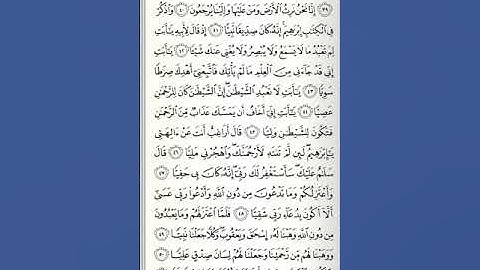 ٣٩ إِنَّا نَحْنُ نَرِثُ ٱلْأَرْضَ وَمَنْ عَلَيْهَا وَإِلَيْنَا يُرْجَعُونَ ٤٠ وَٱذْكُرْ
فِي ٱلْكِتَٰبِ إِبْرَٰهِيمَ إِنَّهُۥ كَانَ صِدِّيقًا نَّبِيًّا ٤١ إِذْ قَالَ لِأَبِيهِ يَٰٓأَبَتِ
لِمَ تَعْبُدُ مَا لَا يَسْمَعُ وَلَا يُبْصِرُ وَلَا يُغْنِي عَنكَ شَيْـًٔا ٤٢ يَٰٓأَبَتِ
إِنِّي قَدْ جَآءَنِي مِنَ ٱلْعِلْمِ مَا لَمْ يَأْتِكَ فَٱتَّبِعْنِيٓ أَهْدِكَ صِرَٰطًا
سَوِيًّا ٤٣ يَٰٓأَبَتِ لَا تَعْبُدِ ٱلشَّيْطَٰنَ إِنَّ ٱلشَّيْطَٰنَ كَانَ لِلرَّحْمَٰنِ
عَصِيًّا ٤٤ يَٰٓأَبَتِ إِنِّيٓ أَخَافُ أَن يَمَسَّكَ عَذَابٌ مِّنَ ٱلرَّحْمَٰنِ
فَتَكُونَ لِلشَّيْطَٰنِ وَلِيًّا ٤٥ قَالَ أَرَاغِبٌ أَنتَ عَنْ ءَالِهَتِي
يَٰٓإِبْرَٰهِيمُ لَئِن لَّمْ تَنتَهِ لَأَرْجُمَنَّكَ وَٱهْجُرْنِي مَلِيًّا ٤٦ قَالَ
سَلَٰمٌ عَلَيْكَ سَأَسْتَغْفِرُ لَكَ رَبِّيٓ إِنَّهُۥ كَانَ بِي حَفِيًّا ٤٧
وَأَعْتَزِلُكُمْ وَمَا تَدْعُونَ مِن دُونِ ٱللَّهِ وَأَدْعُوا۟ رَبِّي عَسَىٰٓ
أَلَّآ أَكُونَ بِدُعَآءِ رَبِّي شَقِيًّا ٤٨ فَلَمَّا ٱعْتَزَلَهُمْ وَمَا يَعْبُدُونَ
مِن دُونِ ٱللَّهِ وَهَبْنَا لَهُۥٓ إِسْحَٰقَ وَيَعْقُوبَ وَكُلًّا جَعَلْنَا نَبِيًّا ٤٩
وَوَهَبْنَا لَهُم مِّن رَّحْمَتِنَا وَجَعَلْنَا لَهُمْ لِسَانَ صِدْقٍ عَلِيًّا ٥٠